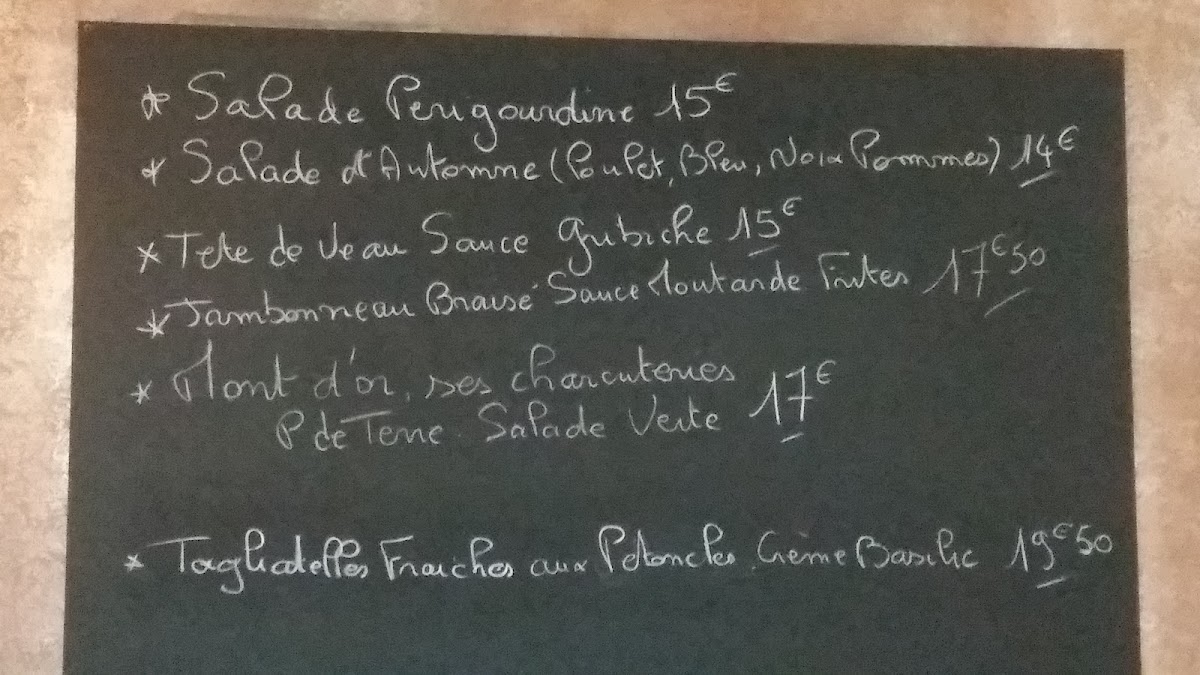 * Salade Perigourdine 15€
* Salade d'Automne (Poulet, Bleu, Noix Pommes) 14€
* Tete de Veau Sauce gribiche 15€
* Jambonneau Braisé Sauce Moutarde Frites 17€50
* Mont d'or, ses charcuteries
P de Terre. Salade Verte 17€
* Tagliatelles Fraiches aux Petoncles. Crème Basilic 19€50